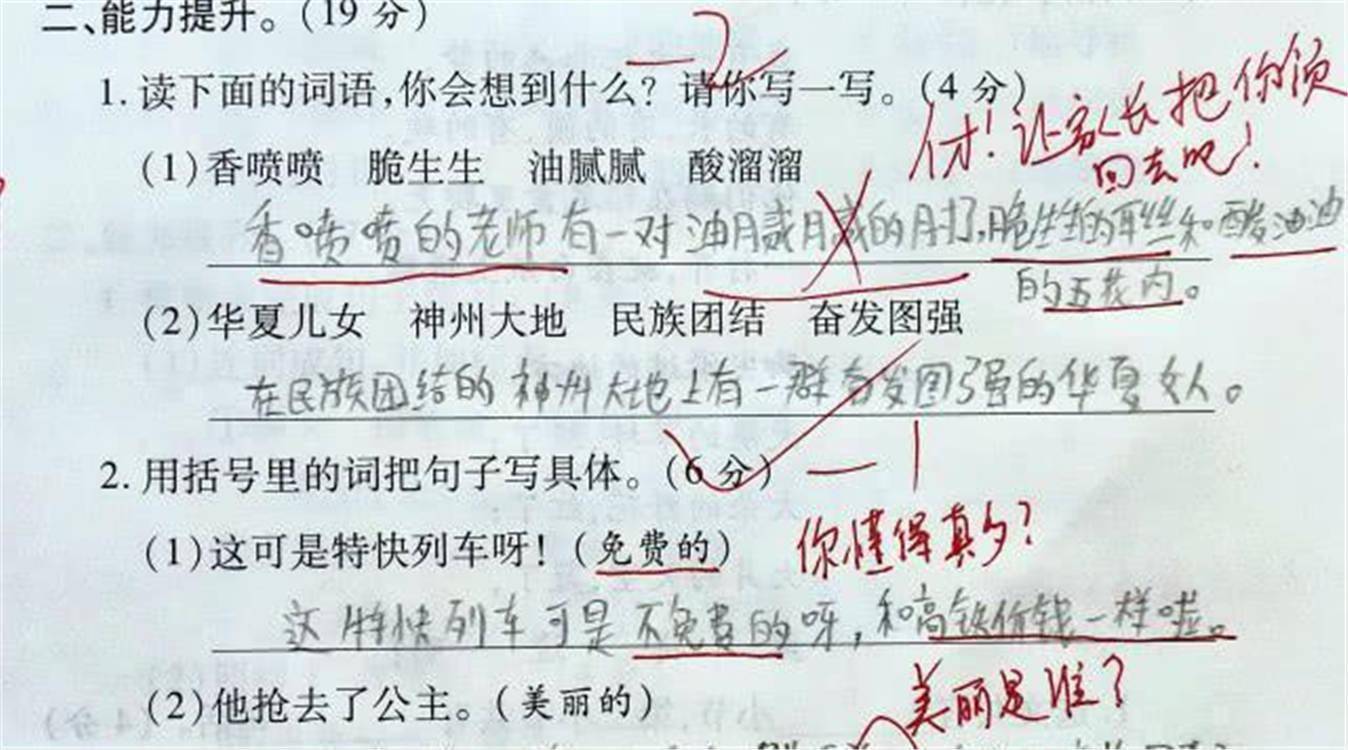 二、能力提升。(19 分)
-2
1. 读下面的词语,你会想到什么? 请你写一写。(4 分)
付! 让家长把你领
回去吧!
(1)香喷喷 脆生生 油腻腻 酸溜溜
香喷喷的老师有一对油腻腻的肘子,脆生生的耳丝和酸油油
的五花肉。
(2)华夏儿女 神州大地 民族团结 奋发图强
在民族团结的神州大地上有一群奋发图强的华夏女人。
2. 用括号里的词把句子写具体。(6 分)
-1
(1)这可是特快列车呀!(免费的)
你懂得真多?
这特快列车可是不免费的呀,和高铁价钱一样啦。
(2)他抢去了公主。(美丽的)
美丽是谁?